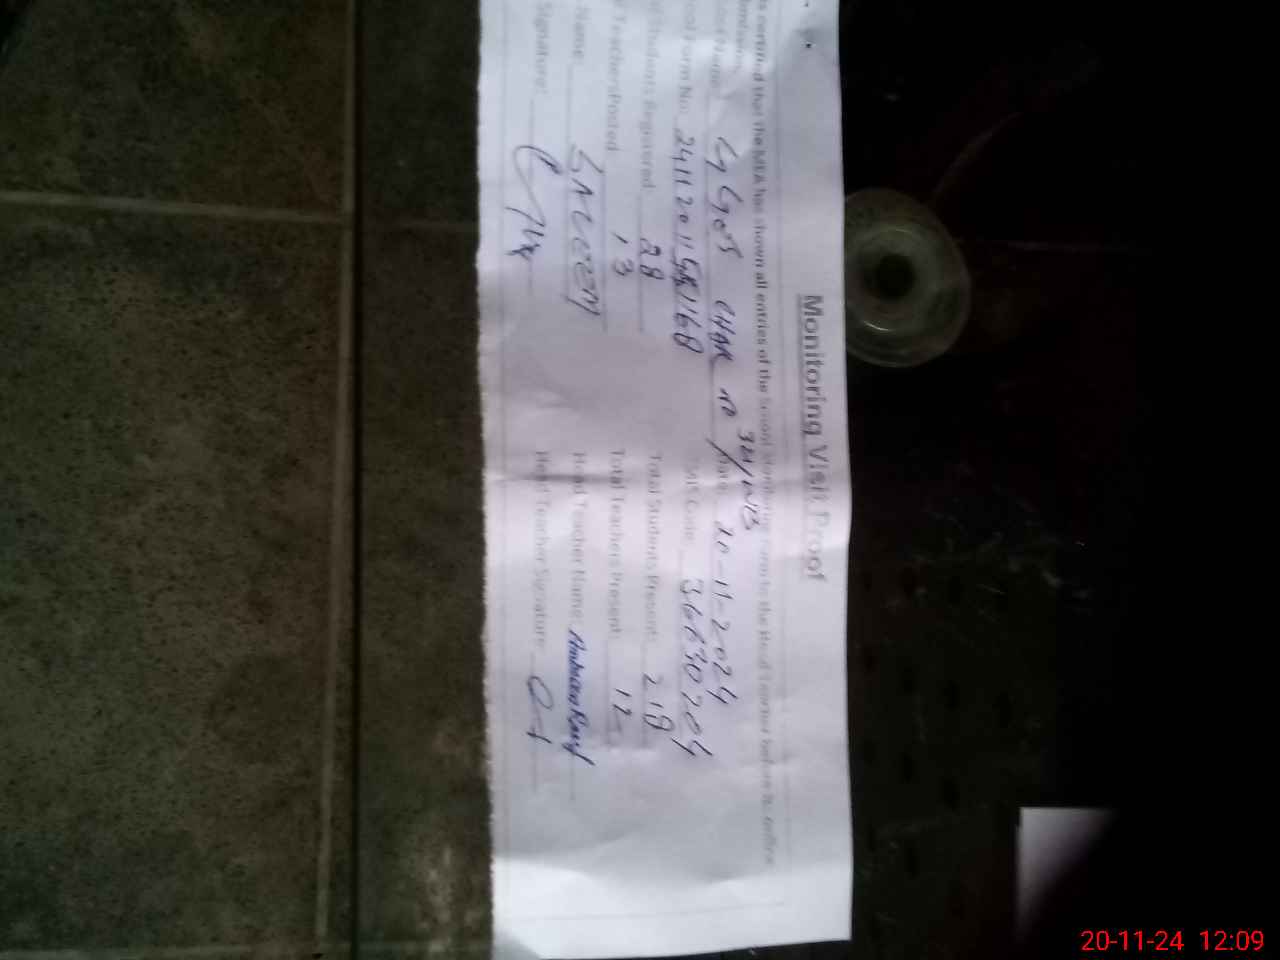 Monitoring Visit Proof
is certified that the MEA has shown all entries of the School Monitoring Form to the Head Teacher before its online
bmission.
ool Name: GGES CHAK NO 321/WB Date: 20-11-2024
ool Form No: 241120115 1168 EMIS Code: 36630204
Students Registered: 28 Total Students Present: 218
Teachers Posted 13 Total Teachers Present: 12
Name: SALEEM Head Teacher Name:
Signature: Head Teacher Signature:
20-11-24 12:09